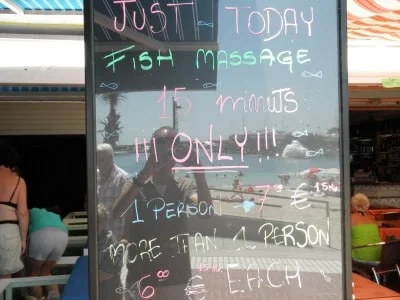 JUST TODAY
FISH MASSAGE
15 minuts
!!! ONLY!!!
1 PERSON 7 € 15 Min
MORE THAN 1 PERSON
6⁰⁰ € EACH